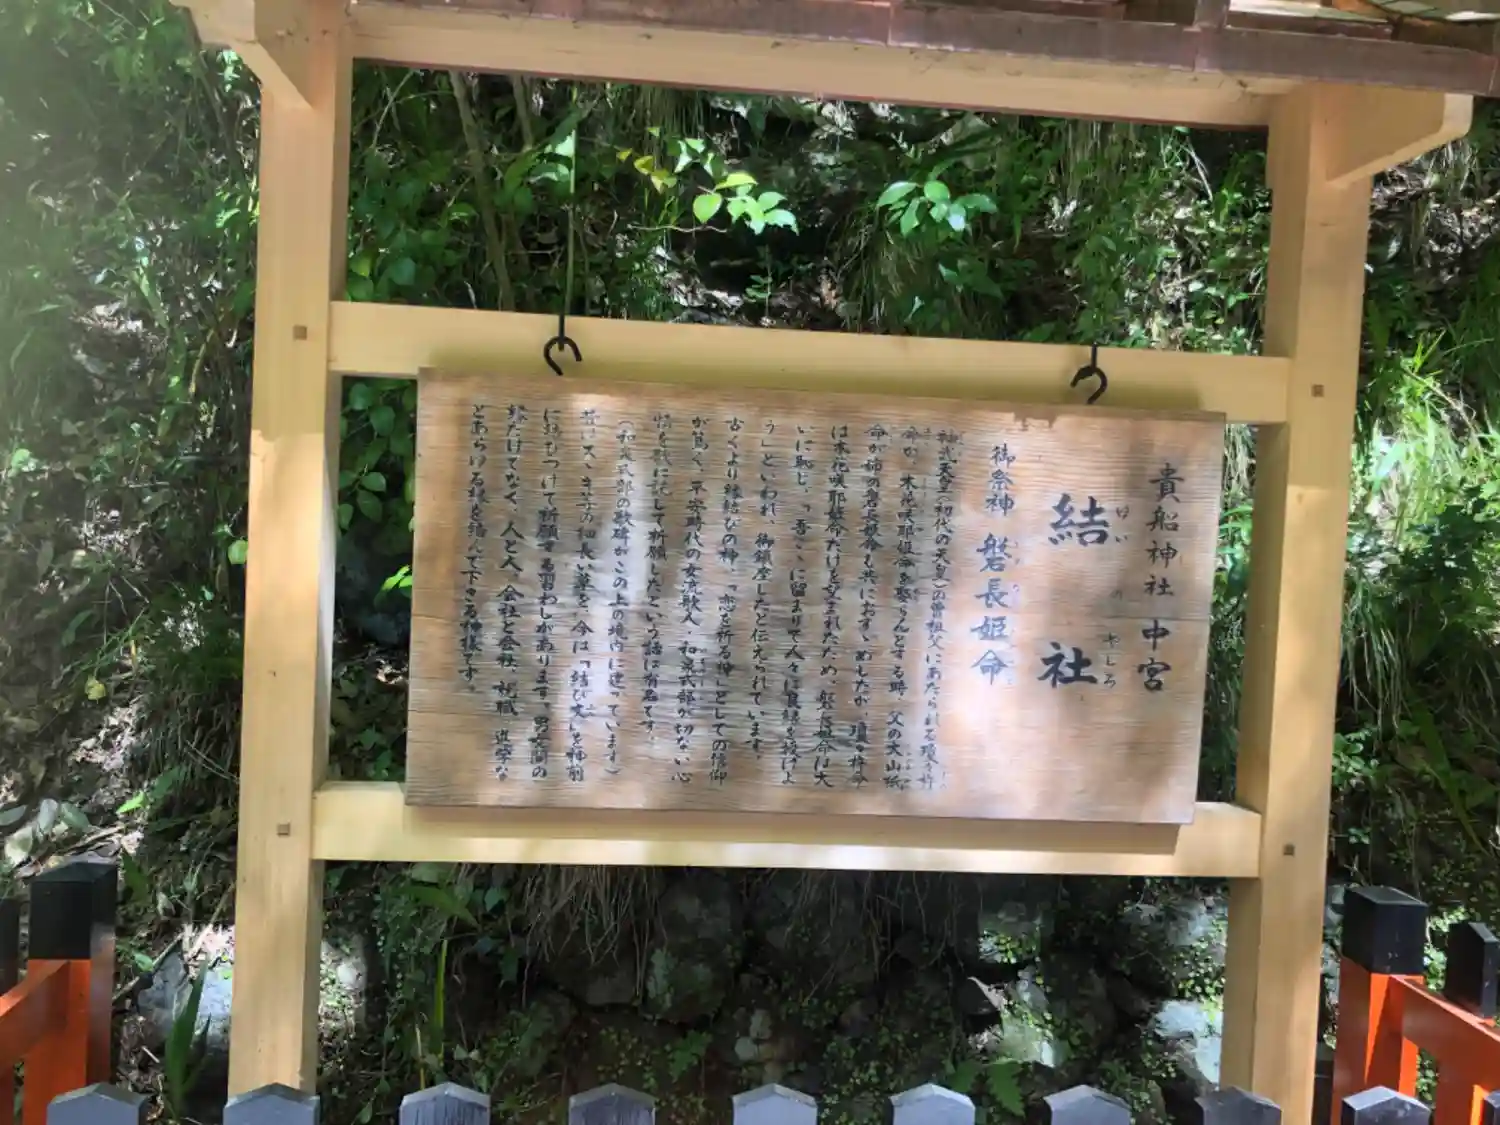 貴船神社 中宮
結 社
ゆい の やしろ
御祭神 磐長姫命
神武天皇(初代の天皇)の曽祖父にあたられる瓊々杵
命が、木花咲耶姫命を娶らんとする時、父の大山祇
命が姉の磐長姫命も共におすゝめしたが、瓊々杵命
は木花咲耶姫命だけを望まれたため、磐長姫命は大
いに恥じ、「吾こゝに留まりて人々に良縁を授けよ
う」といわれ、御鎮座したと伝えられています。
古くより縁結びの神、「恋を祈る神」としての信仰
が篤く、平安時代の女流歌人・和泉式部が切ない心
情を歌に託して祈願したという話は有名です。
(和泉式部の歌碑がこの上の境内に建っています)
昔はスヽキ等の細長い草を、今は「結び文」を神前
に結びつけて祈願する習わしがあります。男女間の
縁だけでなく、人と人、会社と会社、就職、進学な
どあらゆる縁を結んで下さる神様です。